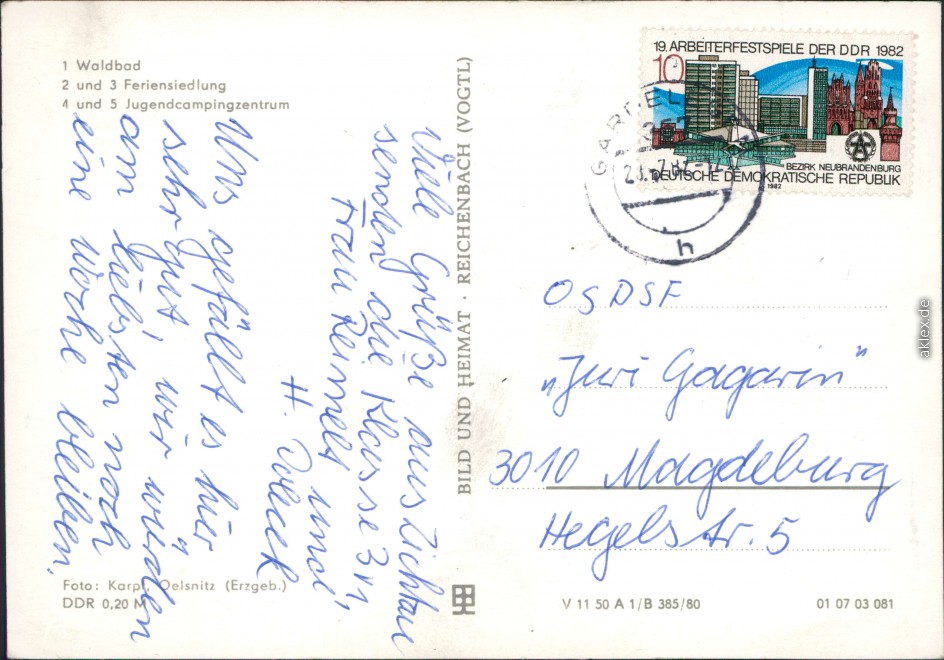 1 Waldbad
2 und 3 Feriensiedlung
4 und 5 Jugendcampingzentrum
Uns gefällt es hier
sehr gut, wir würden
am liebsten noch
eine Woche bleiben.
Viele Grüße aus Zichtau
senden die Klasse 3
Frau Reimelt und
H.
Foto: Karpf, Oelsnitz (Erzgeb.)
DDR 0,20 M
BILD UND HEIMAT · REICHENBACH (VOGTL)
19. ARBEITERFESTSPIELE DER DDR 1982
10
BEZIRK NEUBRANDENBURG
DEUTSCHE DEMOKRATISCHE REPUBLIK
1982
h
OS DSF
„Juri Gagarin"
3010 Magdeburg
Hegelstr. 5
V 11 50 A 1/B 385/80
01 07 03 081
akpool.de